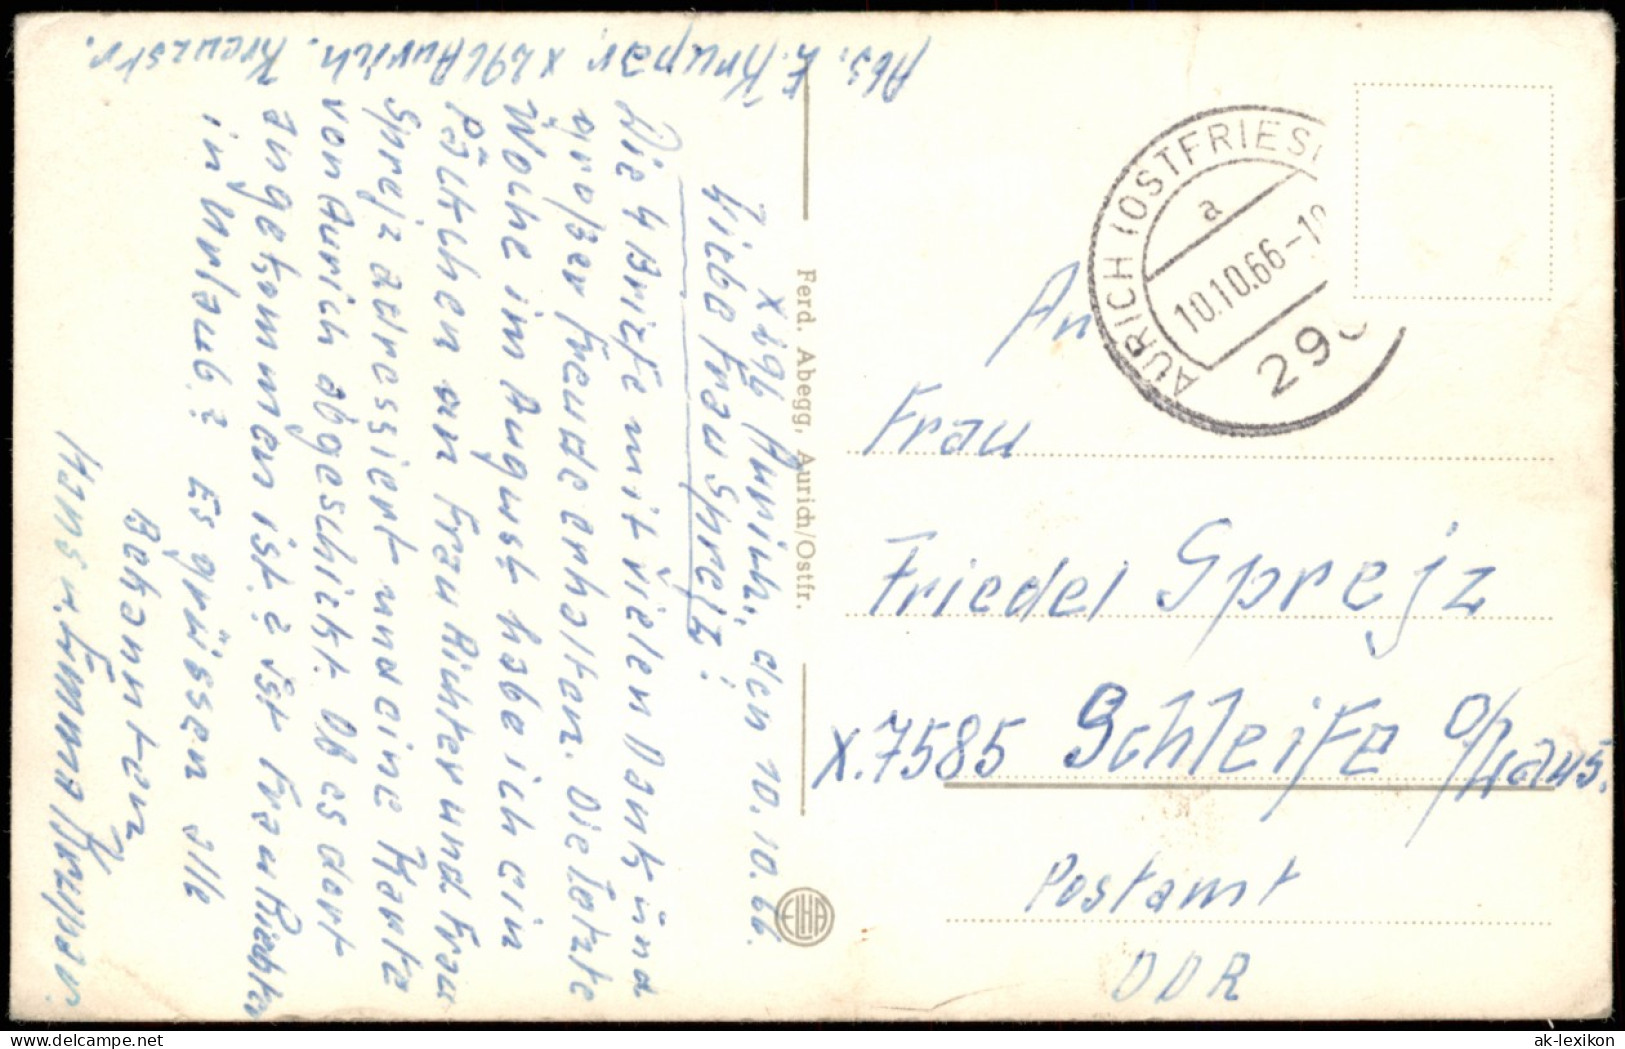 Abs. E. Krupar, x 296 Aurich. Kreuzstr.
x 296 Aurich, den 10.10.66.
Liebe Frau Sprejz!
Die 4 Briefe mit vielen Dank und
großer Freude erhalten. Die letzte
Woche im August habe ich ein
Pätchen an Frau Richter und Frau
Sprejz adressiert und eine Karte
von Aurich abgeschickt. Ob es dort
angekommen ist? Ist Frau Richter
in Urlaub? Es grüssen alle
Bekannten
Hans u. Emma Krupar.
Ferd. Abegg, Aurich/Ostfr.
ELHA
AURICH (OSTFRIESL
a
10.10.66-1
29
An
Frau
Friedel Sprejz
X.7585 Schleife O/Laus.
Postamt
DDR
ak-lexikon